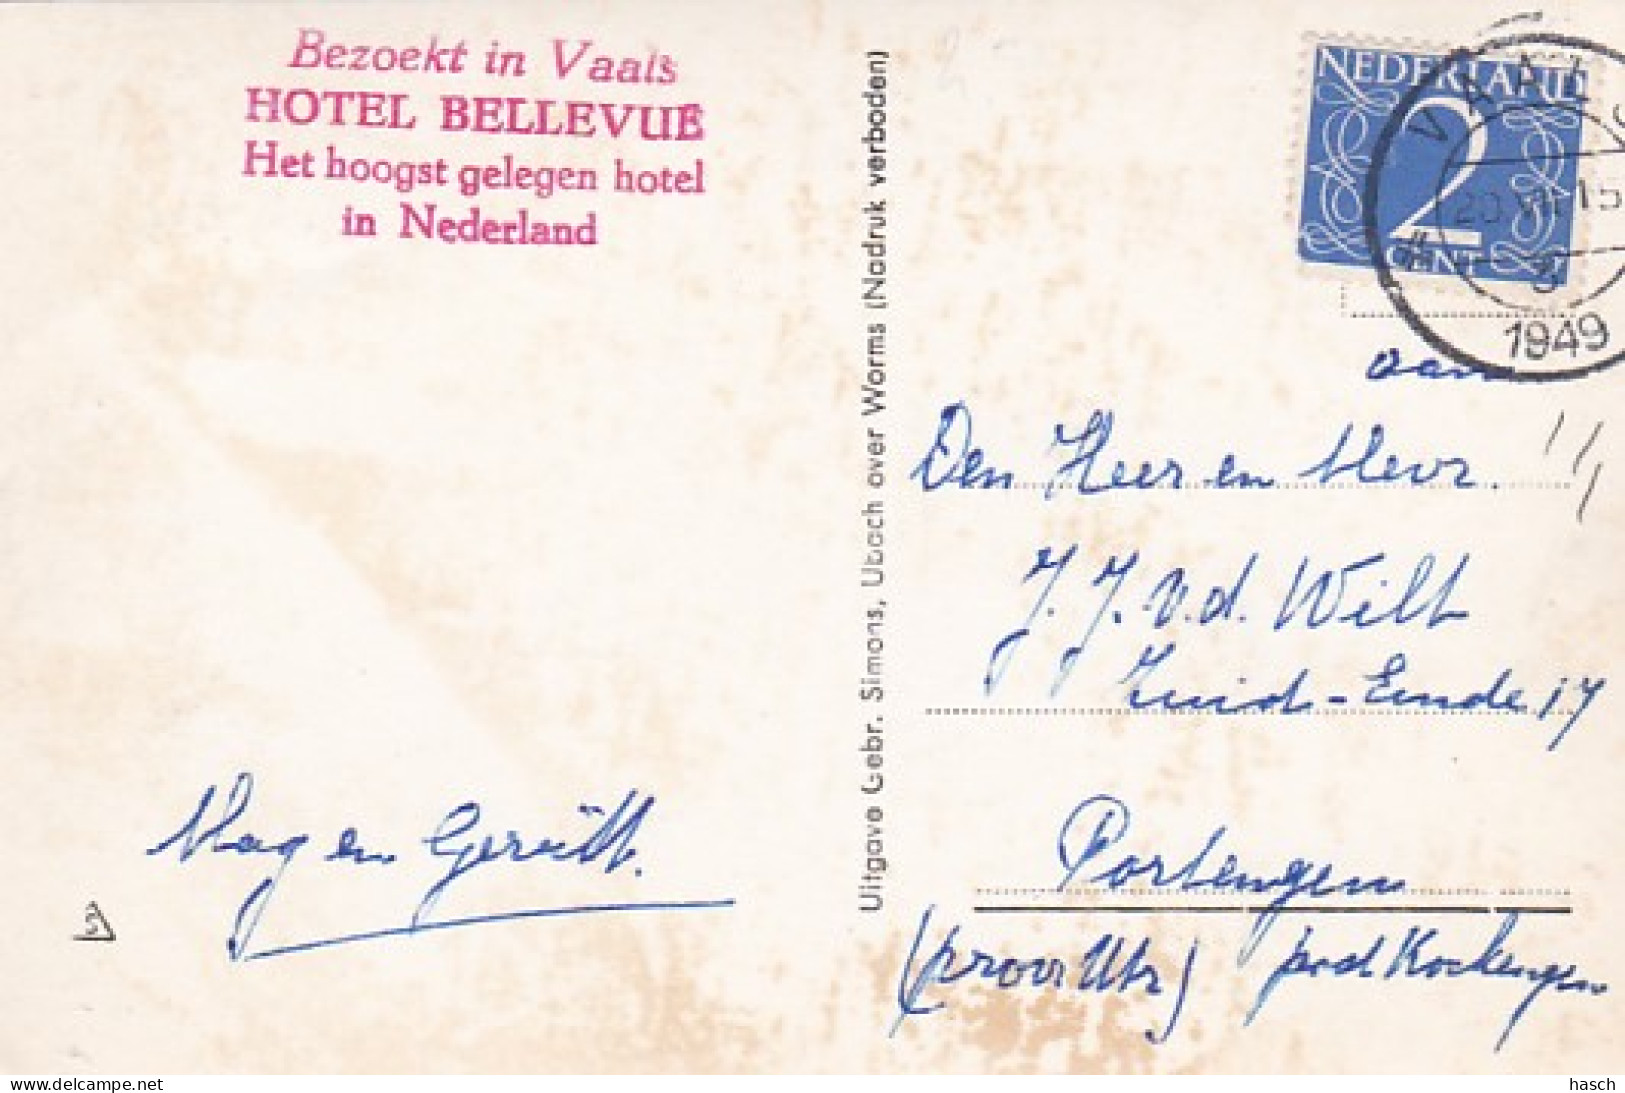 Bezoekt in Vaals
HOTEL BELLEVUE
Het hoogst gelegen hotel
in Nederland
Uitgave Gebr. Simons, Ubach over Worms (Nadruk verboden)
NEDERLAND
2
CENT
VAALS
3
1949
aan
Den Heer en Mevr.
J. J. v. d. Wilt
Zuid-Einde 17
Portengen
(prov Utr) post Kockengen
en Gerùtt.
delcampe.net
hasch